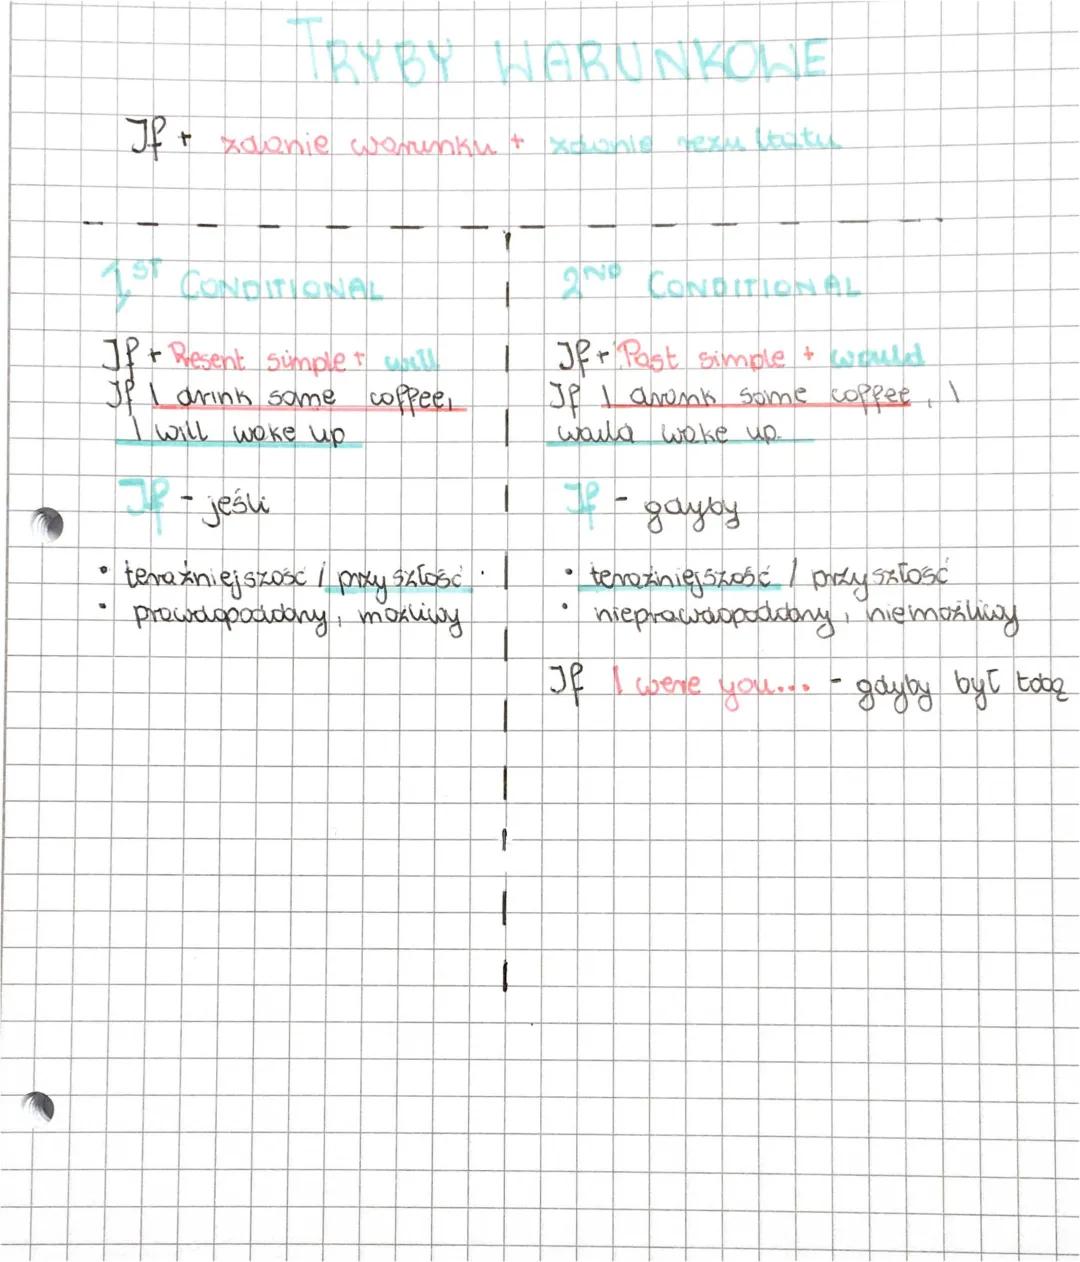 TRYBY WARUNKOWE
If + zdanie warunku + zdanie rezultatu
1ST CONDITIONAL
If + Present simple + will
If I drink some coffee,
I will wake up
If - jeśli
• teraźniejszość / przyszłość
• prawdopodobny, możliwy
2ND CONDITIONAL
If + Past simple + would
If I drank some coffee, I
would wake up.
If - gdyby
• teraźniejszość / przyszłość
• nieprawdopodobny, niemożliwy
If I were you... - gdyby był tobą